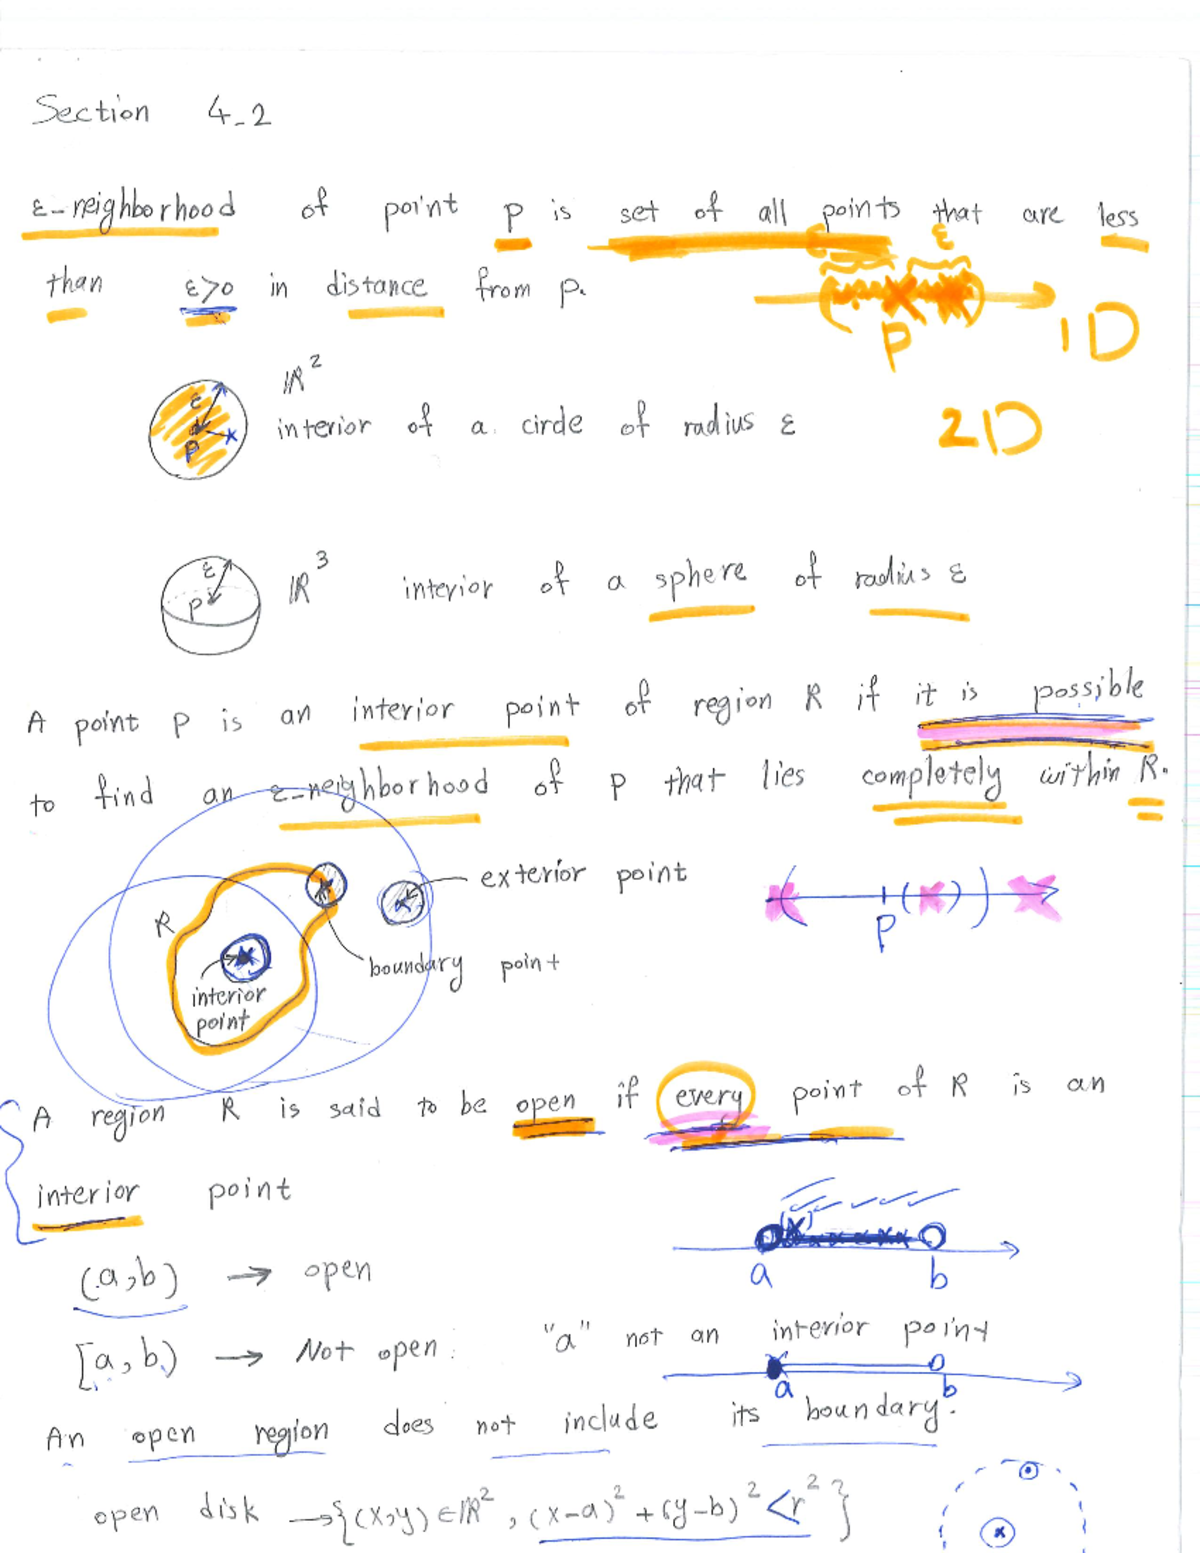 Section 4-2
ε-neighborhood of point p is set of all points that are less
ε
than ε>0 in distance from p.
P
1D
ℝ²
ε
P
interior of a circle of radius ε
2D
ε
P
ℝ³ interior of a sphere of radius ε
A point P is an interior point of region R if it is possible
to find an ε-neighborhood of p that lies completely within R.
exterior point
R
P
boundary point
interior
point
A region R is said to be open if every point of R is an
interior point
a b
(a,b) → open
[a,b) → Not open: "a" not an interior point
a b
An open region does not include its boundary.
open disk → {(x,y) ∈ ℝ², (x-a)² + (y-b)² < r²}